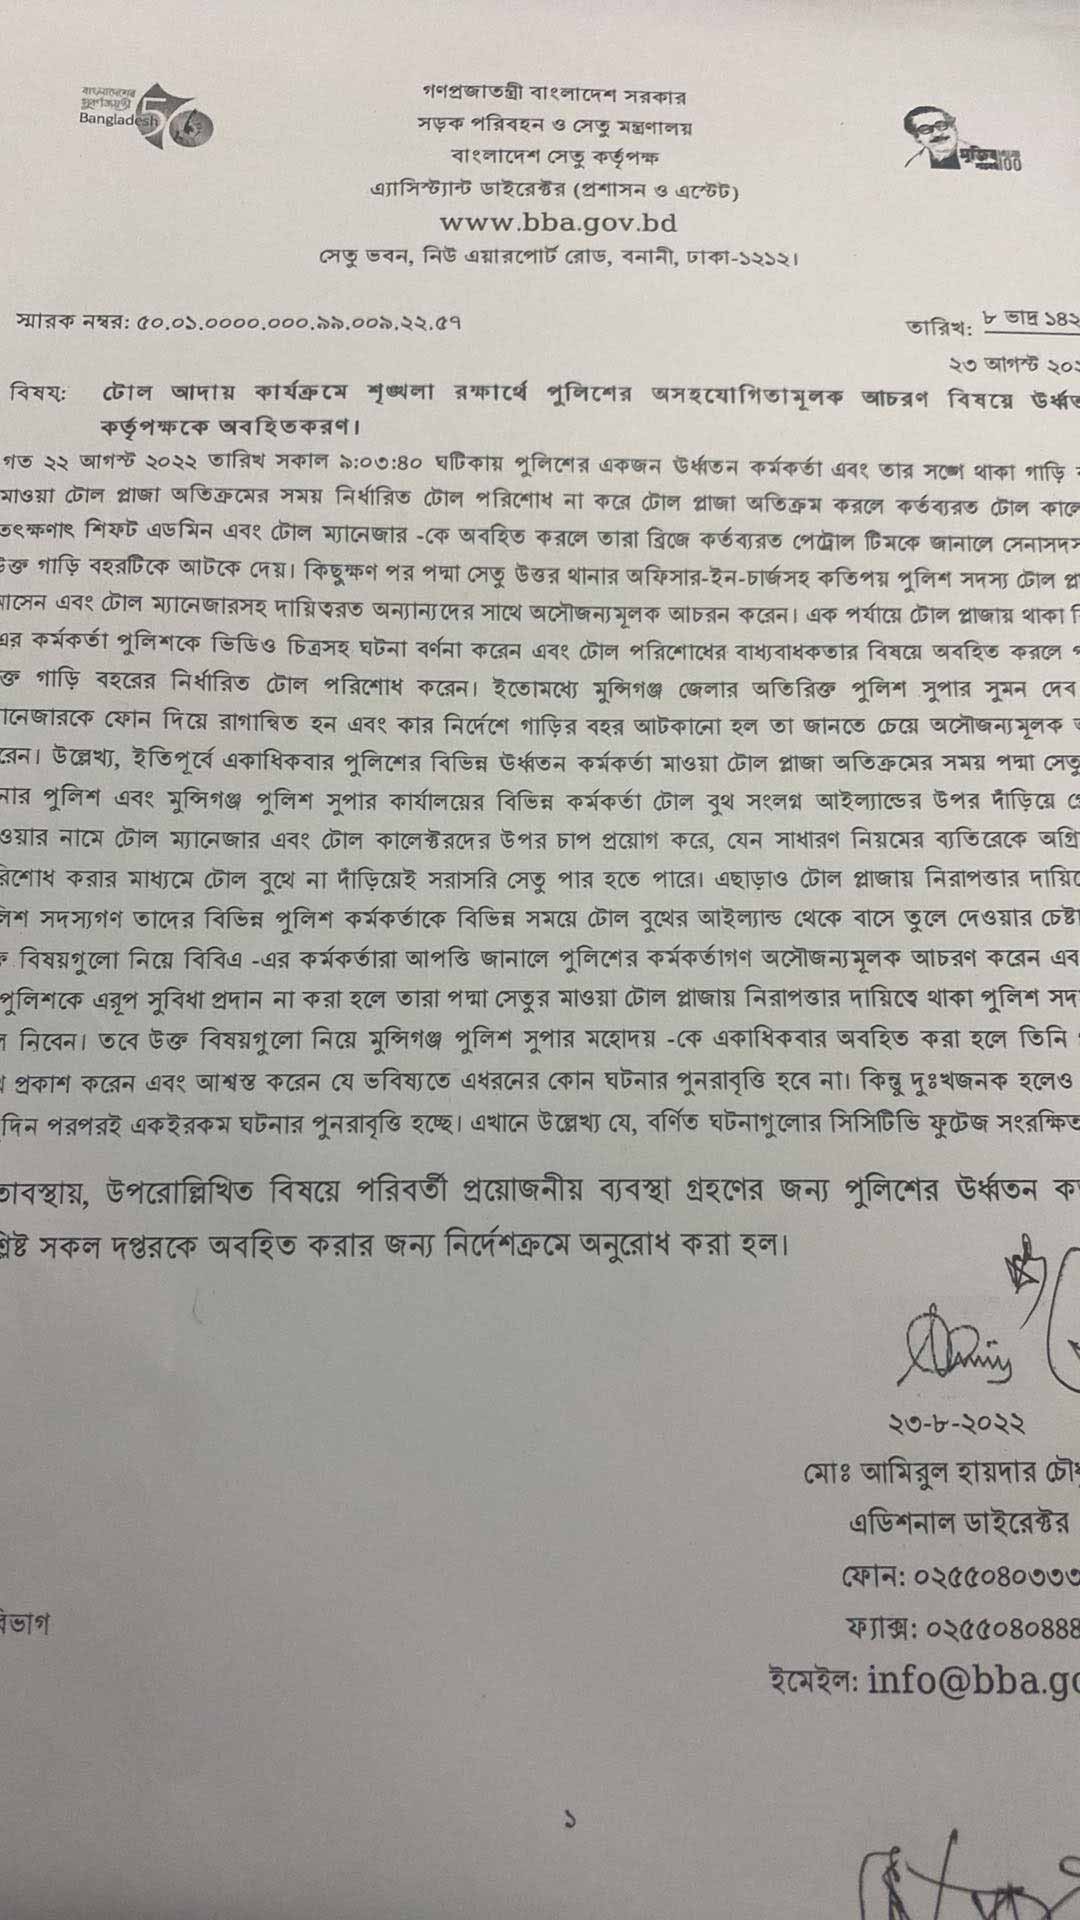 বাংলাদেশের
সুবর্ণজয়ন্তী
Bangladesh 50
মুজিব
100
গণপ্রজাতন্ত্রী বাংলাদেশ সরকার
সড়ক পরিবহন ও সেতু মন্ত্রণালয়
বাংলাদেশ সেতু কর্তৃপক্ষ
এ্যাসিস্ট্যান্ট ডাইরেক্টর (প্রশাসন ও এস্টেট)
www.bba.gov.bd
সেতু ভবন, নিউ এয়ারপোর্ট রোড, বনানী, ঢাকা-১২১২।
স্মারক নম্বর: ৫০.০১.০০০০.০০০.৯৯.০০৯.২২.৫৭
তারিখ: ৮ ভাদ্র ১৪২
২৩ আগস্ট ২০২
বিষয়: টোল আদায় কার্যক্রমে শৃঙ্খলা রক্ষার্থে পুলিশের অসহযোগিতামূলক আচরণ বিষয়ে উর্ধ্বত
কর্তৃপক্ষকে অবহিতকরণ।
গত ২২ আগস্ট ২০২২ তারিখ সকাল ৯:০৩:৪০ ঘটিকায় পুলিশের একজন উর্ধ্বতন কর্মকর্তা এবং তার সঙ্গে থাকা গাড়ি
মাওয়া টোল প্লাজা অতিক্রমের সময় নির্ধারিত টোল পরিশোধ না করে টোল প্লাজা অতিক্রম করলে কর্তব্যরত টোল কালে
তৎক্ষণাৎ শিফট এডমিন এবং টোল ম্যানেজার -কে অবহিত করলে তারা ব্রিজে কর্তব্যরত পেট্রোল টিমকে জানালে সেনাসদস
উক্ত গাড়ি বহরটিকে আটকে দেয়। কিছুক্ষণ পর পদ্মা সেতু উত্তর থানার অফিসার-ইন-চার্জসহ কতিপয় পুলিশ সদস্য টোল প্লা
আসেন এবং টোল ম্যানেজারসহ দায়িত্বরত অন্যান্যদের সাথে অসৌজন্যমূলক আচরন করেন। এক পর্যায়ে টোল প্লাজায় থাকা
এর কর্মকর্তা পুলিশকে ভিডিও চিত্রসহ ঘটনা বর্ণনা করেন এবং টোল পরিশোধের বাধ্যবাধকতার বিষয়ে অবহিত করলে
ক্ত গাড়ি বহরের নির্ধারিত টোল পরিশোধ করেন। ইতোমধ্যে মুন্সিগঞ্জ জেলার অতিরিক্ত পুলিশ সুপার সুমন দেব
ানেজারকে ফোন দিয়ে রাগান্বিত হন এবং কার নির্দেশে গাড়ির বহর আটকানো হল তা জানতে চেয়ে অসৌজন্যমূলক
রেন। উল্লেখ্য, ইতিপূর্বে একাধিকবার পুলিশের বিভিন্ন উর্ধ্বতন কর্মকর্তা মাওয়া টোল প্লাজা অতিক্রমের সময় পদ্মা সেতু
নার পুলিশ এবং মুন্সিগঞ্জ পুলিশ সুপার কার্যালয়ের বিভিন্ন কর্মকর্তা টোল বুথ সংলগ্ন আইল্যান্ডের উপর দাঁড়িয়ে
ওয়ার নামে টোল ম্যানেজার এবং টোল কালেক্টরদের উপর চাপ প্রয়োগ করে, যেন সাধারণ নিয়মের ব্যতিরেকে অগ্রি
রিশোধ করার মাধ্যমে টোল বুথে না দাঁড়িয়েই সরাসরি সেতু পার হতে পারে। এছাড়াও টোল প্লাজায় নিরাপত্তার দায়িত্বে
লিশ সদস্যগণ তাদের বিভিন্ন পুলিশ কর্মকর্তাকে বিভিন্ন সময়ে টোল বুথের আইল্যান্ড থেকে বাসে তুলে দেওয়ার চেষ্টা
বিষয়গুলো নিয়ে বিবিএ -এর কর্মকর্তারা আপত্তি জানালে পুলিশের কর্মকর্তাগণ অসৌজন্যমূলক আচরণ করেন এব
পুলিশকে এরূপ সুবিধা প্রদান না করা হলে তারা পদ্মা সেতুর মাওয়া টোল প্লাজায় নিরাপত্তার দায়িত্বে থাকা পুলিশ সদ
নিবেন। তবে উক্ত বিষয়গুলো নিয়ে মুন্সিগঞ্জ পুলিশ সুপার মহোদয় -কে একাধিকবার অবহিত করা হলে তিনি
প্রকাশ করেন এবং আশ্বস্ত করেন যে ভবিষ্যতে এধরনের কোন ঘটনার পুনরাবৃত্তি হবে না। কিন্তু দুঃখজনক হলেও
দিন পরপরই একইরকম ঘটনার পুনরাবৃত্তি হচ্ছে। এখানে উল্লেখ্য যে, বর্ণিত ঘটনাগুলোর সিসিটিভি ফুটেজ সংরক্ষিত
তাবস্থায়, উপরোল্লিখিত বিষয়ে পরিবর্তী প্রয়োজনীয় ব্যবস্থা গ্রহণের জন্য পুলিশের উর্ধ্বতন
শ্লিষ্ট সকল দপ্তরকে অবহিত করার জন্য নির্দেশক্রমে অনুরোধ করা হল।
২৩-৮-২০২২
মোঃ আমিরুল হায়দার চৌধু
এডিশনাল ডাইরেক্টর
ফোন: ০২৫৫০৪০৩৩৩
বিভাগ
ফ্যাক্স: ০২৫৫০৪০৪৪৪
ইমেইল: info@bba.go
১